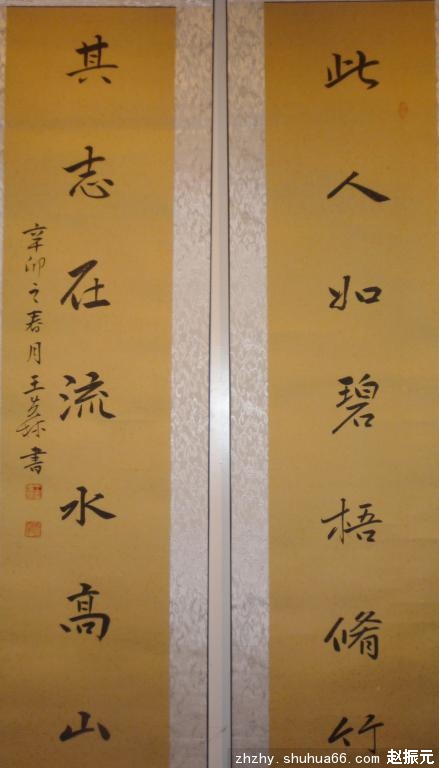 此人如碧梧脩竹
其志在流水高山
辛卯之春月王 书
zhzhy.shuhua66.com 赵振元